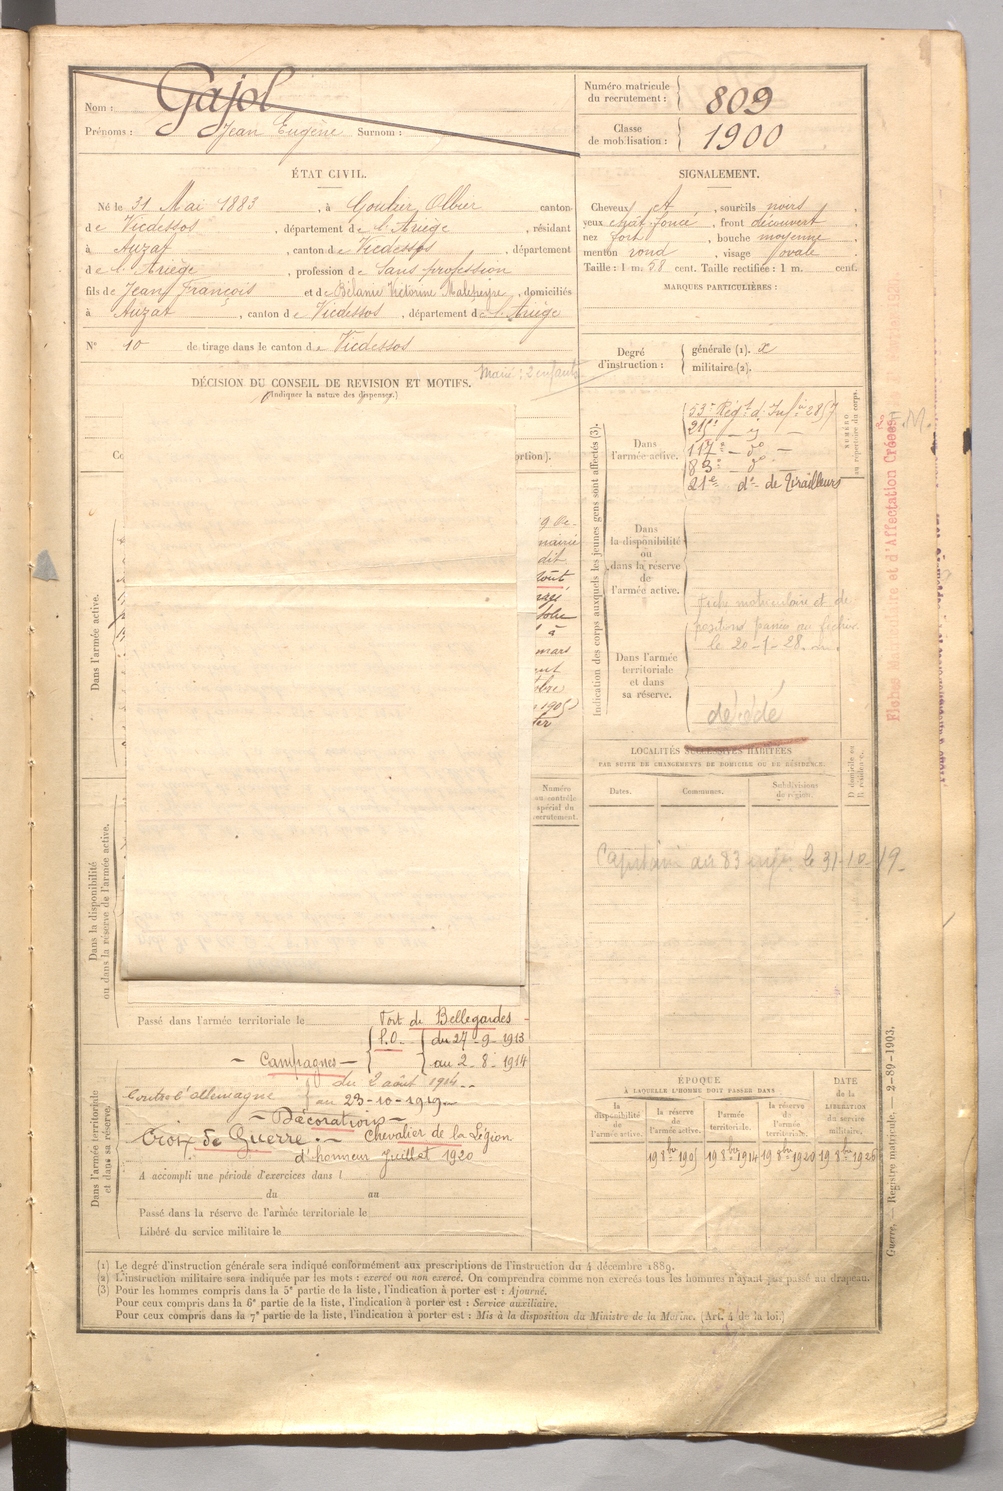 Nom : Gajol
Prénoms : Jean Eugène Surnom :
Numéro matricule du recrutement : 809
Classe de mobilisation : 1900
ÉTAT CIVIL.
Né le 31 Mai 1883, à Goulier Olbier canton
de Vicdessos, département de l'Ariège, résidant
à Auzat, canton de Vicdessos, département
de l'Ariège, profession de Sans profession
fils de Jean François et de Mélanie Victorine Malpeyre, domiciliés
à Auzat, canton de Vicdessos, département de l'Ariège
N° 10 de tirage dans le canton de Vicdessos
SIGNALEMENT.
Cheveux et, sourcils noirs,
yeux chât. foncé, front découvert,
nez fort, bouche moyenne,
menton rond, visage ovale.
Taille : 1 m. 58 cent. Taille rectifiée : 1 m. cent.
MARQUES PARTICULIÈRES :
Degré d'instruction : générale (1). x
militaire (2).
Marié : 2 enfants
DÉCISION DU CONSEIL DE REVISION ET MOTIFS.
(Indiquer la nature des dispenses.)
Co
ortion).
Dans l'armée active.
9 De-
mairie
dit
août
à
mars
ent
1905)
Dans la disponibilité
ou dans la réserve de l'armée active.
Numéro
au contrôle
spécial du
recrutement.
Indication des corps auxquels les jeunes gens sont affectés (3).
Dans l'armée active.
53e Régt d'Infie 2857
117e - do -
83e - do
21e do de Tirailleurs
NUMÉRO
au répertoire du corps.
Dans la disponibilité
ou
dans la réserve
de
l'armée active.
Fiche matriculaire et de
positions passée au fichier
le 20-1-28.
Dans l'armée
territoriale
et dans
sa réserve.
décédé
LOCALITÉS SUCCESSIVES HABITÉES
PAR SUITE DE CHANGEMENTS DE DOMICILE OU DE RÉSIDENCE.
Dates.
Communes.
Subdivisions
de région.
D domicile ou
R résidence.
Capitaine au 83 infie le 31-10-19-
Passé dans l'armée territoriale le
Dans l'armée territoriale
et dans sa réserve.
Fort de Bellegardes -
P.O. du 27-9-1913
au 2-8-1914
- Campagnes -
Contre l'allemagne du 2 août 1914
au 23-10-1919
- Décoration -
Croix de Guerre. - Chevalier de la Légion
d'honneur Juillet 1920
A accompli une période d'exercices dans l
du au
Passé dans la réserve de l'armée territoriale le
Libéré du service militaire le
ÉPOQUE
À LAQUELLE L'HOMME DOIT PASSER DANS
la
disponibilité
de
l'armée active.
la réserve
de
l'armée active.
l'armée
territoriale.
la réserve
de
l'armée
territoriale.
DATE
de la
LIBÉRATION
du service
militaire.
19 8bre 1905
19 8bre 1914
19 8bre 1920
19 8bre 1926
(1) Le degré d'instruction générale sera indiqué conformément aux prescriptions de l'instruction du 4 décembre 1889.
(2) L'instruction militaire sera indiquée par les mots : exercé ou non exercé. On comprendra comme non exercés tous les hommes n'ayant pas passé au drapeau.
(3) Pour les hommes compris dans la 5e partie de la liste, l'indication à porter est : Ajourné.
Pour ceux compris dans la 6e partie de la liste, l'indication à porter est : Service auxiliaire.
Pour ceux compris dans la 7e partie de la liste, l'indication à porter est : Mis à la disposition du Ministre de la Marine. (Art. 4 de la loi.)
Guerre. — Registre matricule. — 2-89-1903.